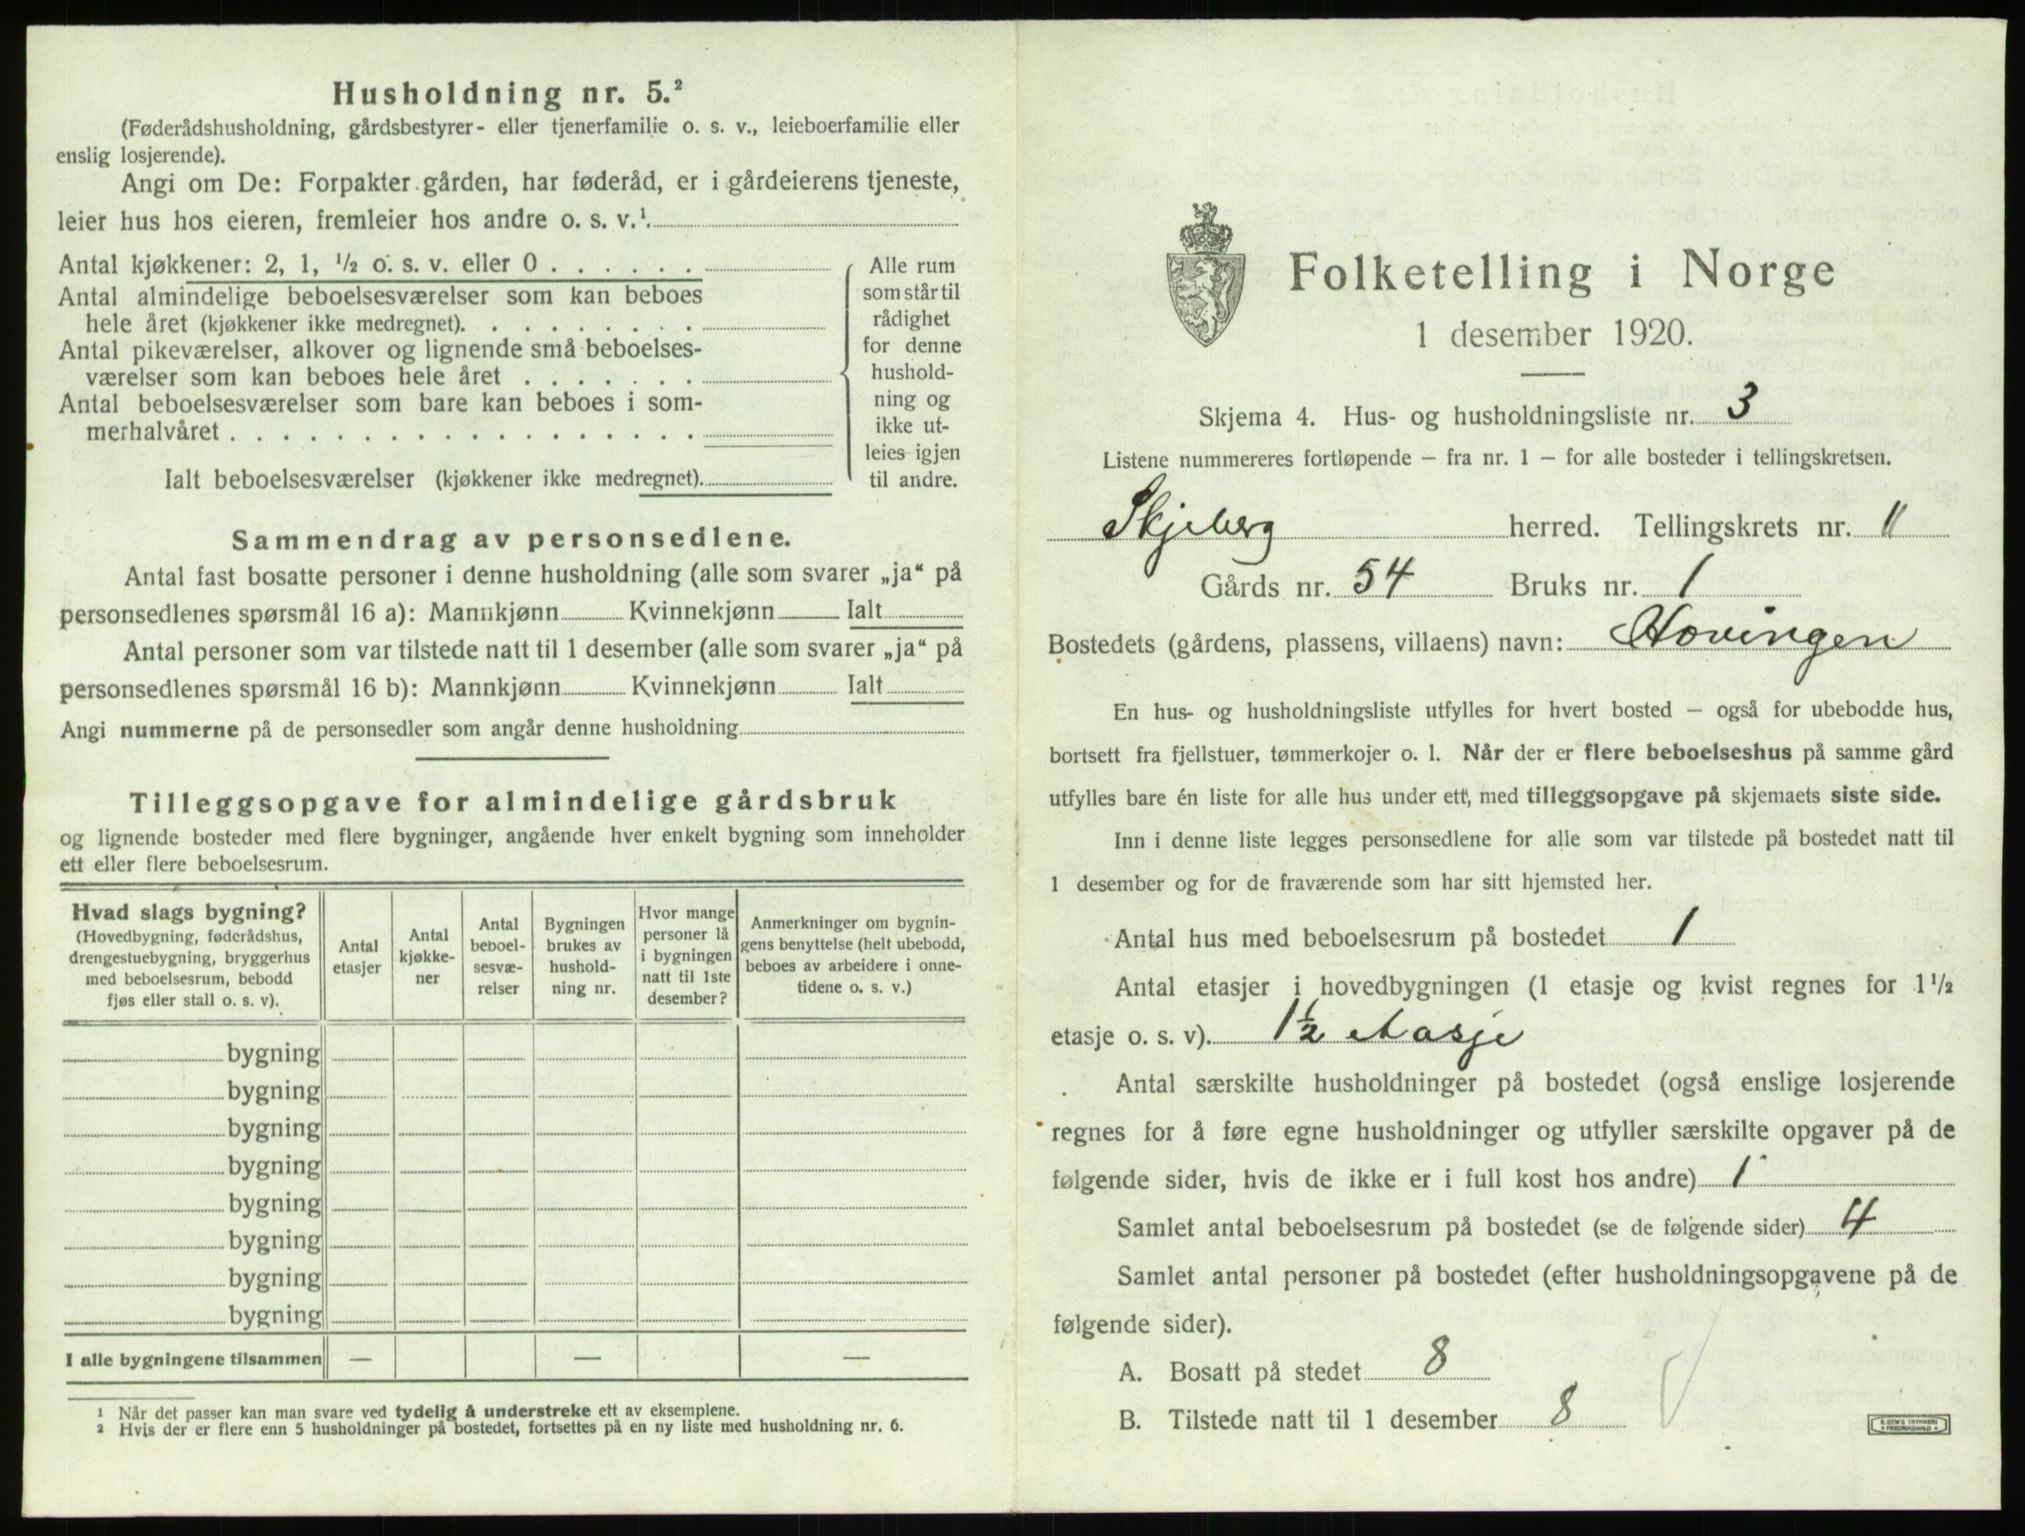 Husholdning nr. 5.²
(Føderådshusholdning, gårdsbestyrer- eller tjenerfamilie o. s. v., leieboerfamilie eller
enslig losjerende).
Angi om De: Forpakter gården, har føderåd, er i gårdeierens tjeneste,
leier hus hos eieren, fremleier hos andre o. s. v.¹.
Antal kjøkkener: 2, 1, ½ o. s. v. eller 0 . . . . . .
Antal almindelige beboelsesværelser som kan beboes
hele året (kjøkkener ikke medregnet). . . . . . . . .
Antal pikeværelser, alkover og lignende små beboelses-
værelser som kan beboes hele året . . . . . . .
Antal beboelsesværelser som bare kan beboes i som-
merhalvåret . . . . . . . . . . . . . . . . . .
Alle rum
som står til
rådighet
for denne
hushold-
ning og
ikke ut-
leies igjen
til andre.
Ialt beboelsesværelser (kjøkkener ikke medregnet).
Sammendrag av personsedlene.
Antal fast bosatte personer i denne husholdning (alle som svarer „ja“ på
personsedlenes spørsmål 16 a): Mannkjønn Kvinnekjønn Ialt
Antal personer som var tilstede natt til 1 desember (alle som svarer „ja“ på
personsedlenes spørsmål 16 b): Mannkjønn Kvinnekjønn Ialt
Angi nummerne på de personsedler som angår denne husholdning
Tilleggsopgave for almindelige gårdsbruk
og lignende bosteder med flere bygninger, angående hver enkelt bygning som inneholder
ett eller flere beboelsesrum.
Hvad slags bygning?
(Hovedbygning, føderådshus,
drengestuebygning, bryggerhus
med beboelsesrum, bebodd
fjøs eller stall o. s. v).
Antal
etasjer
Antal
kjøkke-
ner
Antal
beboel-
sesvæ-
relser
Bygningen
brukes av
hushold-
ning nr.
Hvor mange
personer lå
i bygningen
natt til 1ste
desember?
Anmerkninger om bygnin-
gens benyttelse (helt ubebodd,
beboes av arbeidere i onne-
tidene o. s. v.)
bygning
bygning
bygning
bygning
bygning
bygning
bygning
bygning
I alle bygningene tilsammen — — —
¹ Når det passer kan man svare ved tydelig å understreke ett av eksemplene.
² Hvis der er flere enn 5 husholdninger på bostedet, fortsettes på en ny liste med husholdning nr. 6.
Folketelling i Norge
1 desember 1920.
Skjema 4. Hus- og husholdningsliste nr. 3
Listene nummereres fortløpende – fra nr. 1 – for alle bosteder i tellingskretsen.
Skjeberg herred. Tellingskrets nr. 11
Gårds nr. 54 Bruks nr. 1
Bostedets (gårdens, plassens, villaens) navn: Hovingen
En hus- og husholdningsliste utfylles for hvert bosted – også for ubebodde hus,
bortsett fra fjellstuer, tømmerkojer o. l. Når der er flere beboelseshus på samme gård
utfylles bare én liste for alle hus under ett, med tilleggsopgave på skjemaets siste side.
Inn i denne liste legges personsedlene for alle som var tilstede på bostedet natt til
1 desember og for de fraværende som har sitt hjemsted her.
Antal hus med beboelsesrum på bostedet 1
Antal etasjer i hovedbygningen (1 etasje og kvist regnes for 1½
etasje o. s. v). 1½ etasje
Antal særskilte husholdninger på bostedet (også enslige losjerende
regnes for å føre egne husholdninger og utfyller særskilte opgaver på de
følgende sider, hvis de ikke er i full kost hos andre) 1
Samlet antal beboelsesrum på bostedet (se de følgende sider) 4
Samlet antal personer på bostedet (efter husholdningsopgavene på de
følgende sider).
A. Bosatt på stedet 8
B. Tilstede natt til 1 desember 8